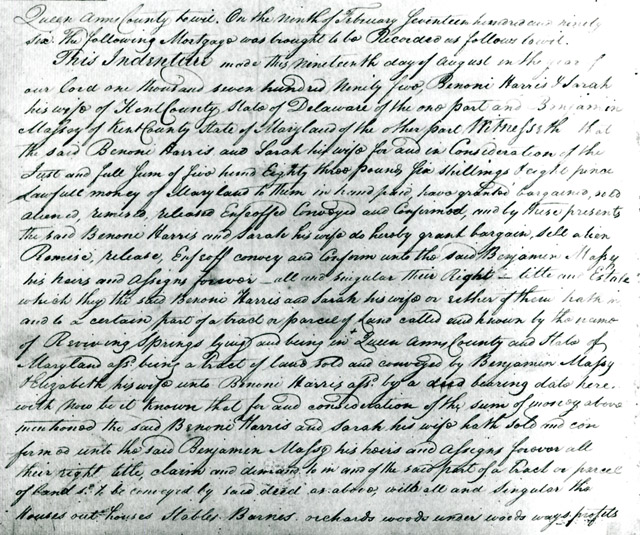 Queen Anns County to wit. On the Ninth of February Seventeen hundred and ninety
six The following Mortgage was brought to be Recorded as follows to wit.
This Indenture made this Nineteenth day of August in the year of
our Lord one thousand seven hundred Ninety five Benoni Harris & Sarah
his wife of Kent County State of Delaware of the one part and Benjamin
Massey of Kent County State of Maryland of the other part Witnesseth that
the said Benoni Harris and Sarah his wife for and in Consideration of the
Just and full Sum of five hund Eighty three pound six Shillings & eight pence
Lawfull money of Maryland to them in hand paid, have granted bargained, sold
aliened, remised, released Enfeoffed Conveyed and Confirmed, and by these presents
the said Benoni Harris and Sarah his wife do hereby grant bargain, sell alien
Remise, release, Enfeoff convey and Confirm unto the said Benjamin Massy
his heirs and Assigns forever all and singular their Right title and Estate
which they the said Benoni Harris and Sarah his wife or either of them hath in
and to a certain part of a tract or parcel of Land called and known by the name
of Reviving Springs lying and being in Queen Anns County and State of
Maryland afs. being a tract of land sold and conveyed by Benjamin Massy
& Elizabeth his wife unto Benoni Harris afs. by a deed bearing date here
with Now be it known that for and consideration of the sum of money above
mentioned the said Benoni Harris and Sarah his wife hath sold and con
firmed unto the said Benjamin Massy his heirs and Assigns forever all
their right title, claim and demand to in and of the said part of a tract or parcel
of land sd. to be conveyed by said deed as above, with all and singular the
Houses out houses Stables Barnes orchards woods under woods ways profits